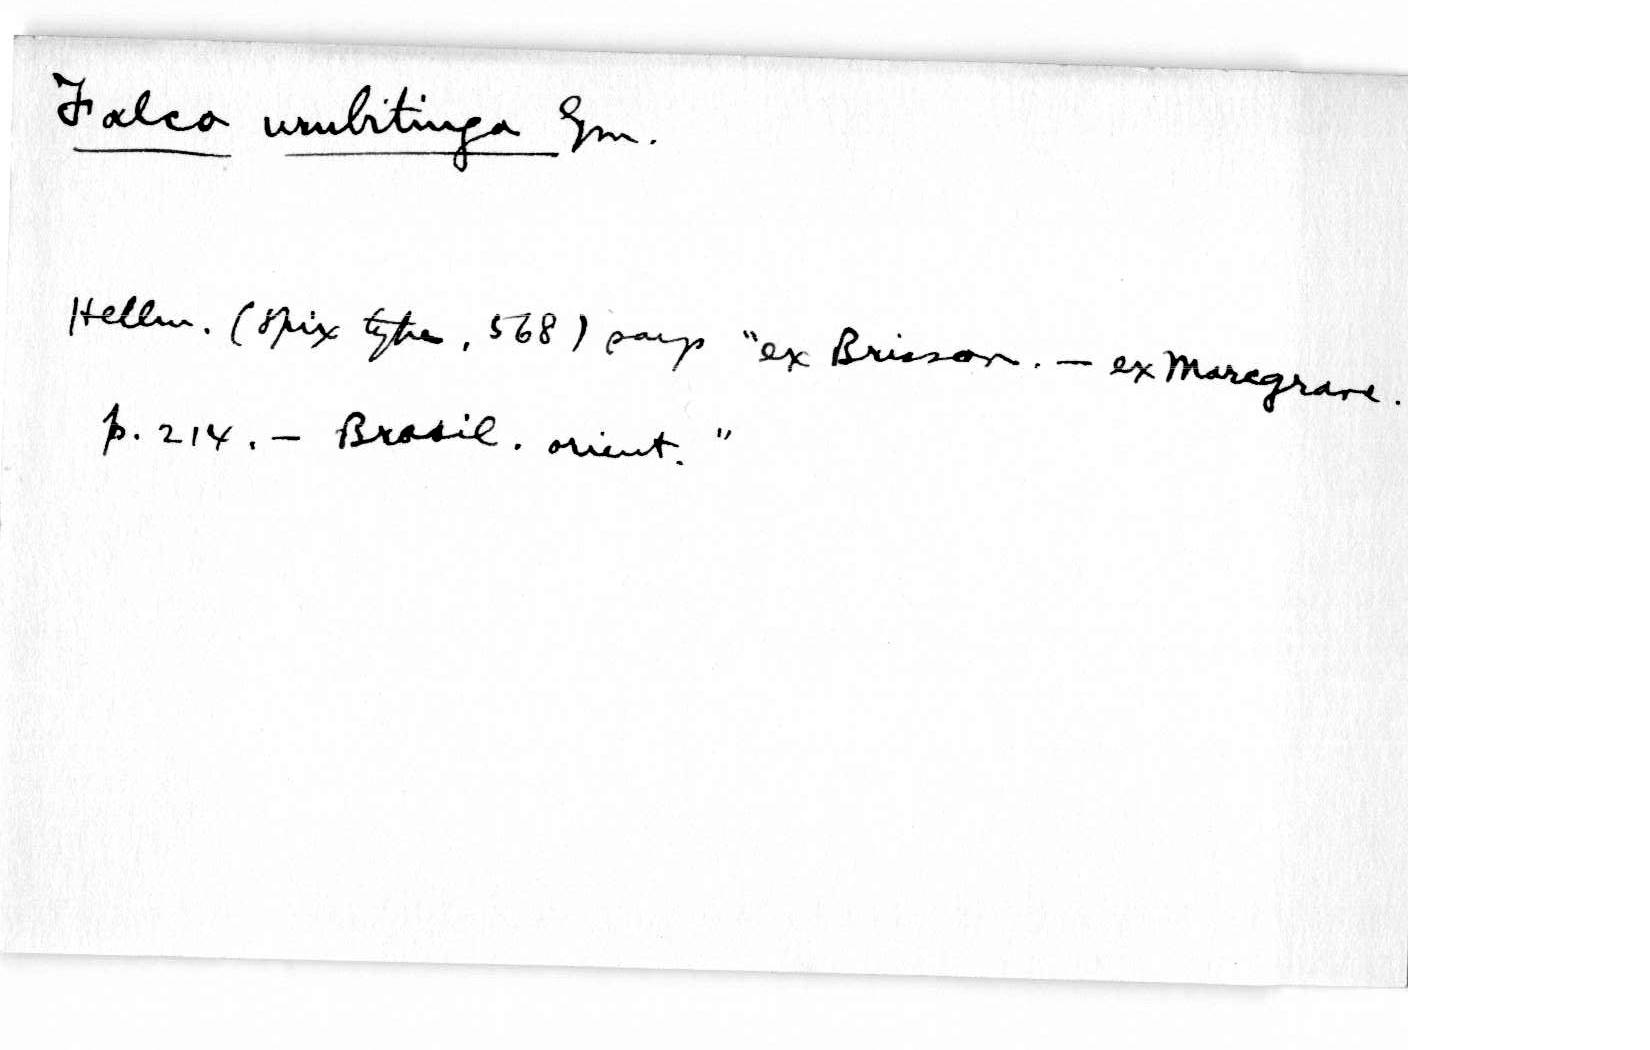 Falco urubitinga Gm.
Hellm. (Spix types, 568) says "ex Brisson. — ex Marcgrave.
p. 214. — Brasil. orient."